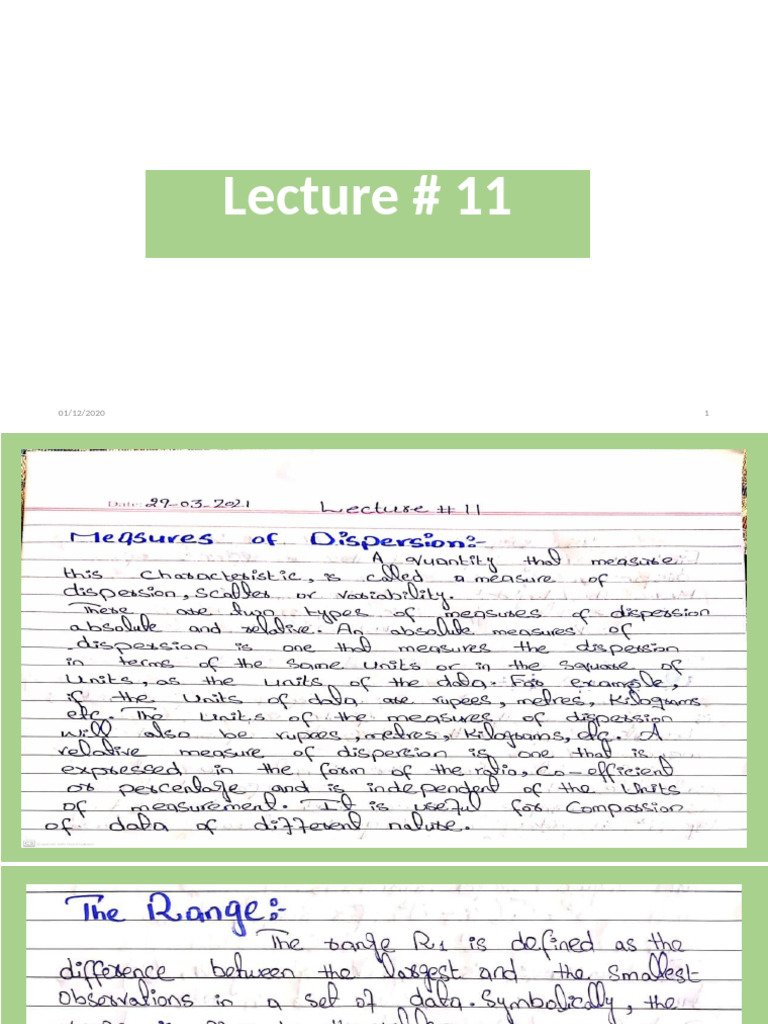 Lecture # 11
01/12/2020
1
Date: 29-03-2021 Lecture # 11
Measures of Dispersion:-
A quantity that measure
this characteristic, is called a measure of
dispersion, scatter or variability.
There are two types of measures of dispersion
absolute and relative. An absolute measures of
dispersion is one that measures the dispersion
in terms of the same units or in the square of
units, as the units of the data. For example,
if the units of data are rupees, metres, kilograms
etc. The units of the measures of dispersion
will also be rupees, metres, kilograms, etc. A
relative measure of dispersion is one that is
expressed in the form of the ratio, co-efficient
or percentage and is independent of the units
of measurement. It is useful for Comparsion
of data of different nature.
The Range:-
The range R1 is defined as the
difference between the largest and the smallest
observations in a set of data. Symbolically, the